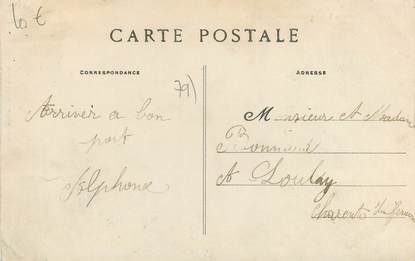 10 €
CARTE POSTALE
CORRESPONDANCE
ADRESSE
79)
Arriver a bon
port
Alphonse
Monsieur et Madame
A Loulay
Charente Inferieure